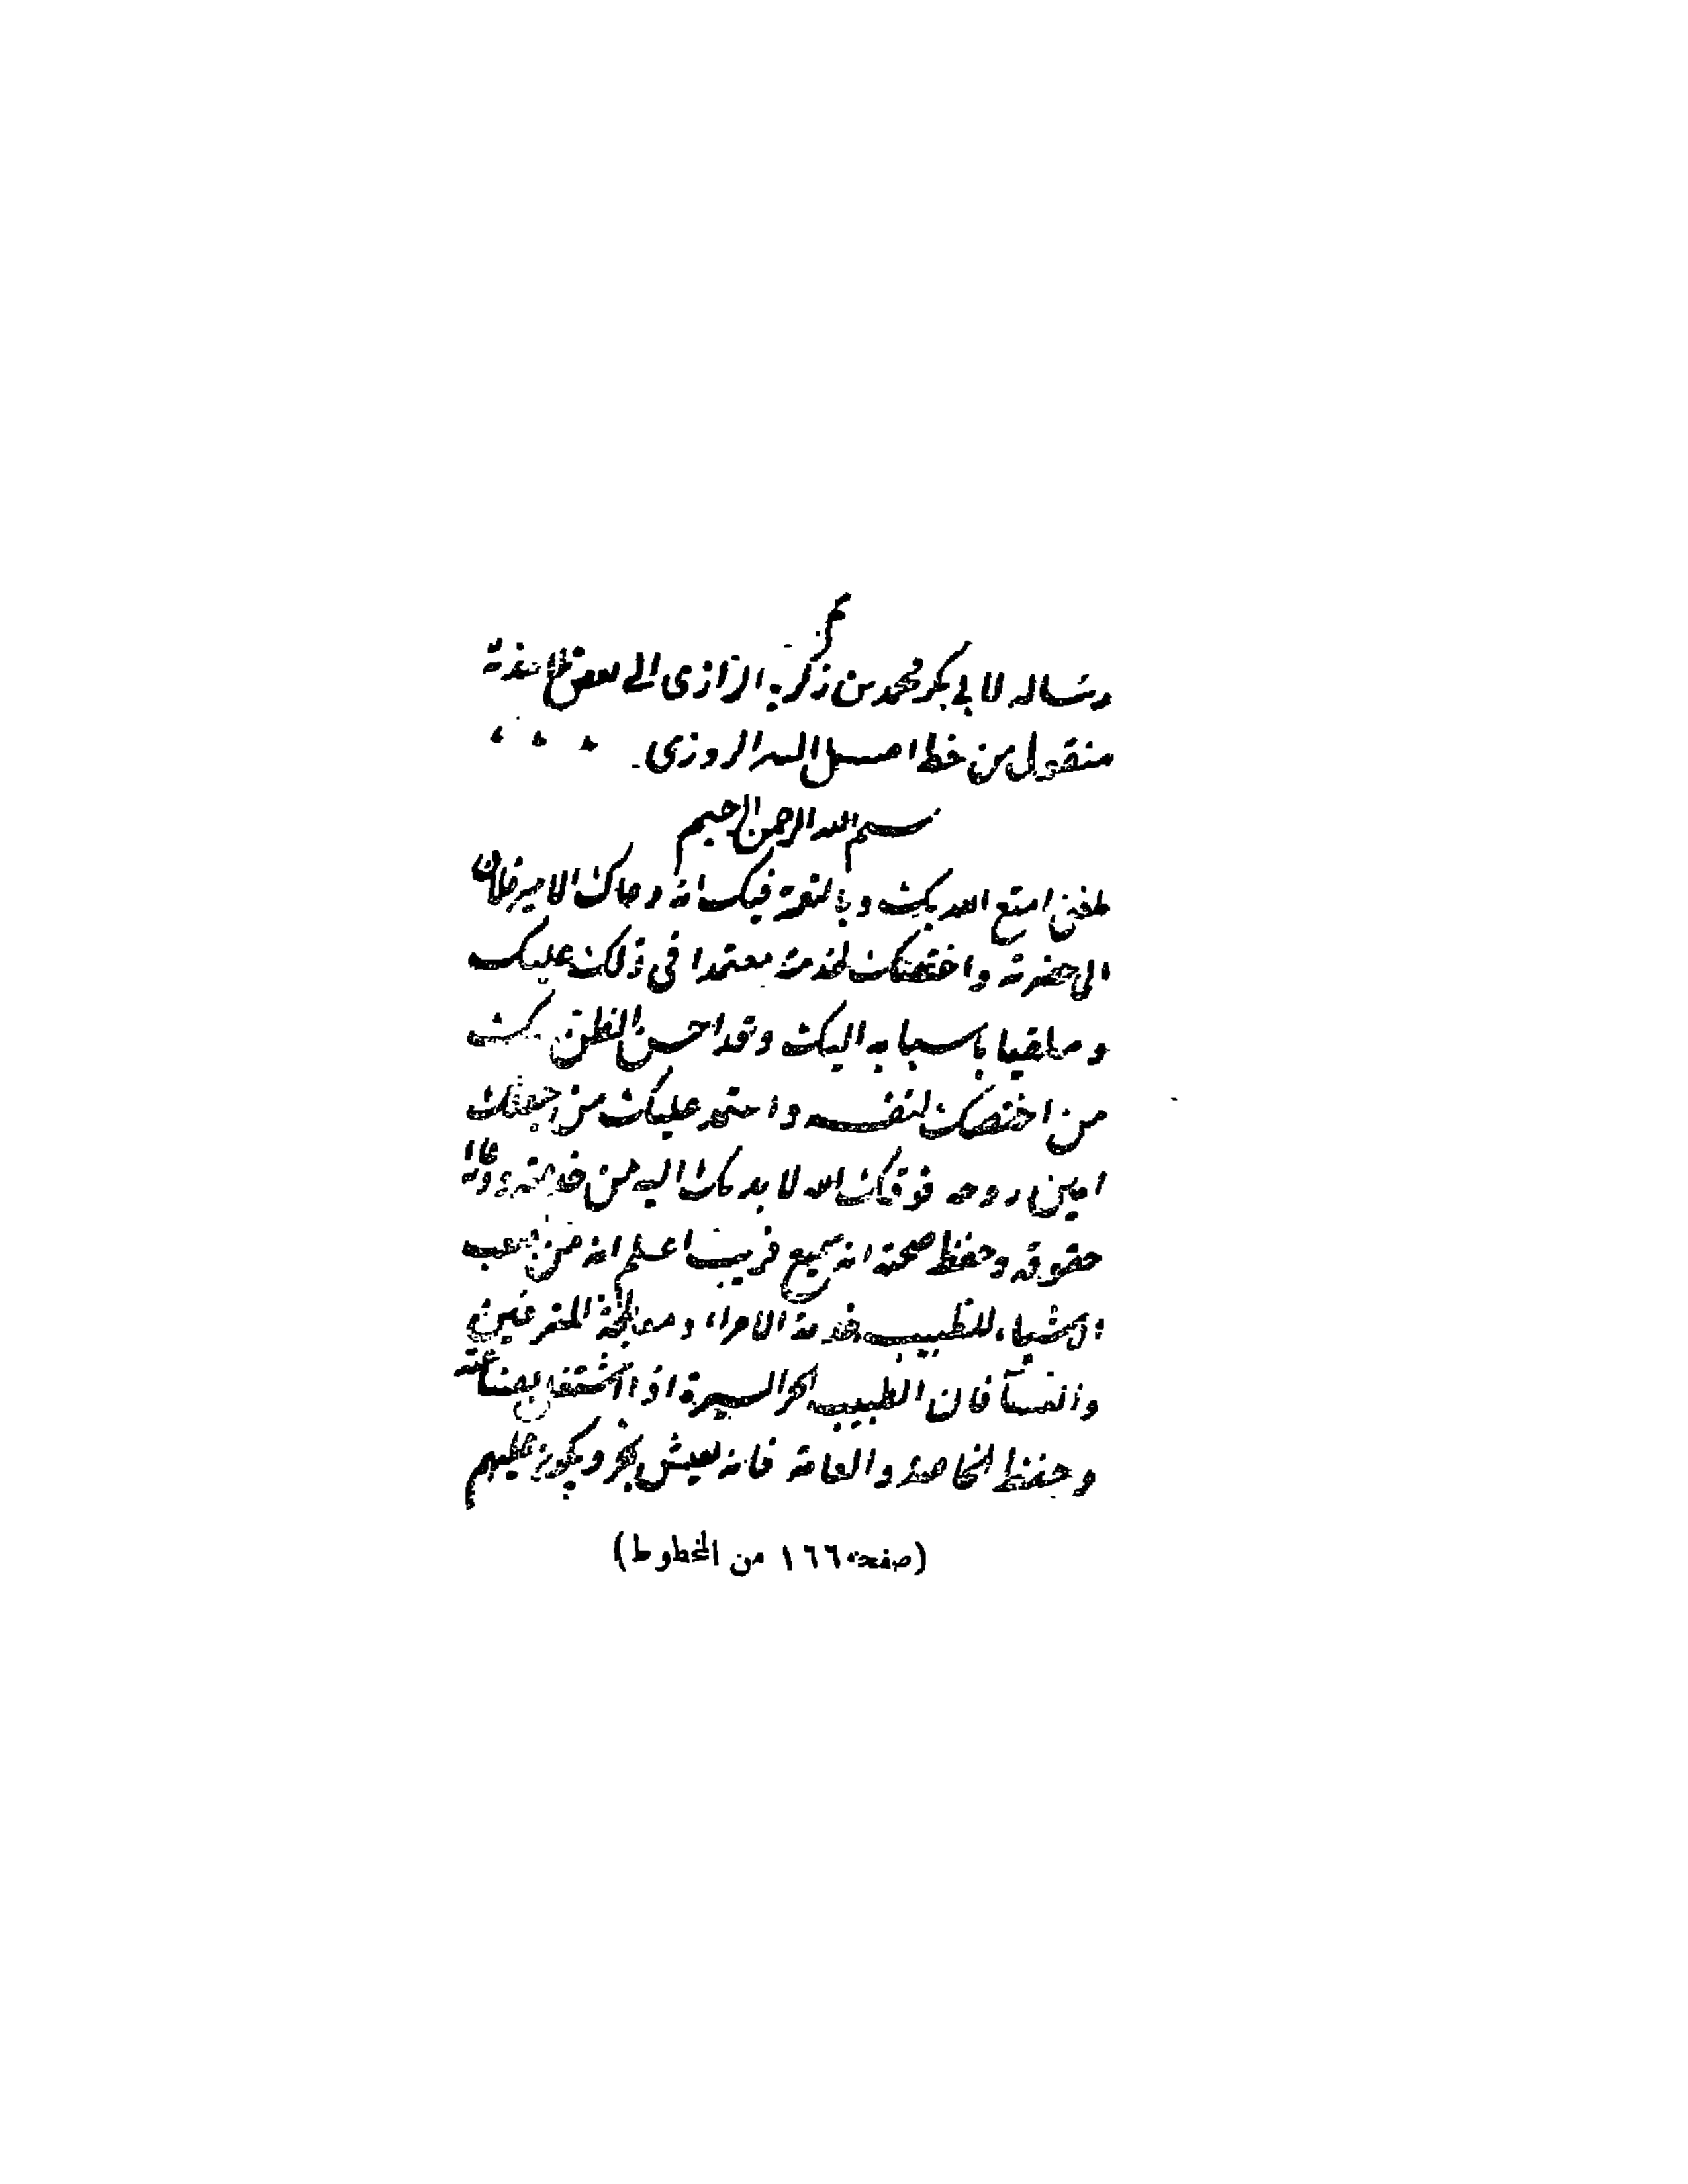 رساله لابي بكر محمد بن زكريا الرازى الى بعض تلامذته
منقول من خط الروزى
بسم الله الرحمن الرحيم
بلغنى امتع الله بك وبالنعمة فيك انه دعاك الامير فلان
الى حضرته واختصك لخدمته معتمدا فى ذلك عليك
وملقيا باسبابه اليك وقد احسن الظن بك
من اختصك لنفسه واعتمد عليك من جعلك
امين روحه فوفقك الله لا بد لك اليه من خدمته
حقوقه وحفظ صحته انه سميع قريب اعلم انه من اصعب
الاشياء للطبيب خدمة الامراء ومعالجة المترفين
والنسآ فان الطبيب الحر السيرة اذا اشتغل بصناعته
وحفظ الخاصة والعامة فانه يعيش بخير ويكون عليهم
(صفحة ١٦٦ من المخطوط)